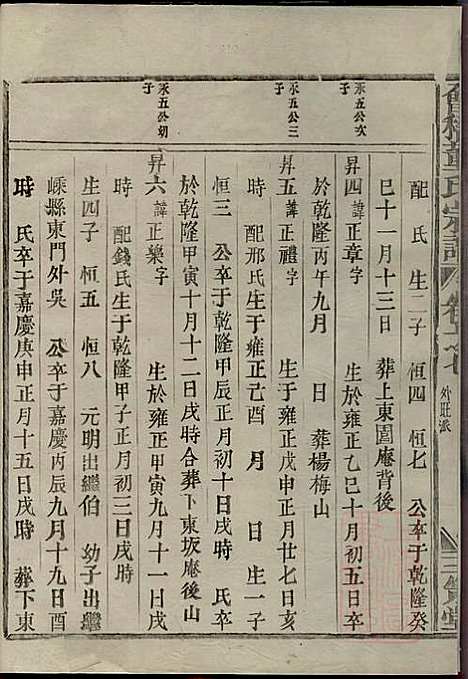 會稽章氏宗譜 卷七 外旺派
配氏 生二子 恒四 恒七 公卒于乾隆癸
巳十一月十三日 葬上東園庵背後
永五公次子
昇四 諱正章字 生於雍正乙巳十月初五日卒
於乾隆丙午九月 日 葬楊梅山
永五公三子
昇五 諱正禮字 生於雍正戊申正月廿七日亥
時 配邢氏生于雍正己酉 月 日 生一子
恒三 公卒于乾隆甲辰正月初十日戌時 氏卒
於乾隆甲寅十月十二日戌時合葬下東坂庵後山
永五公幼子
昇六 諱正樂字 生於雍正甲寅九月十一日戌
時 配錢氏生于乾隆甲子正月初三日戌時
生四子 恒五 恒八 元明出繼伯 幼子出繼
嵊縣東門外吳 公卒于嘉慶丙辰九月十九日酉
時 氏卒于嘉慶庚申正月十五日戌時 葬下東